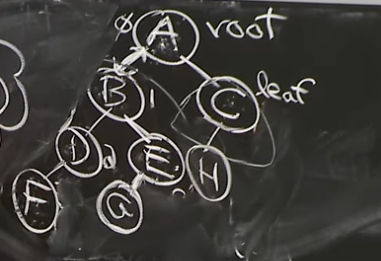 0 A root
B 1 C leaf
D 2 E H
F G